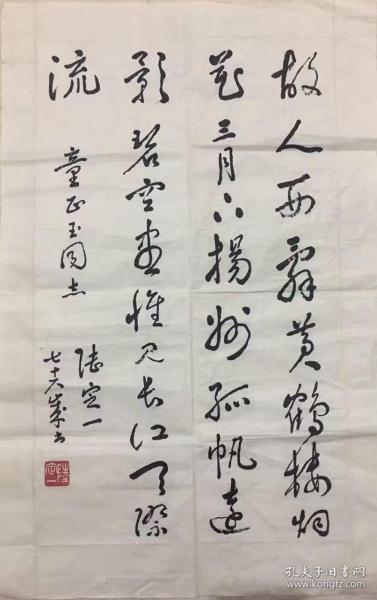 故人西辞黄鹤楼烟
花三月下扬州孤帆远
影碧空尽惟见长江天际
流
童正玉同志
陆定一
七十六岁书
陆定一
孔夫子旧书网